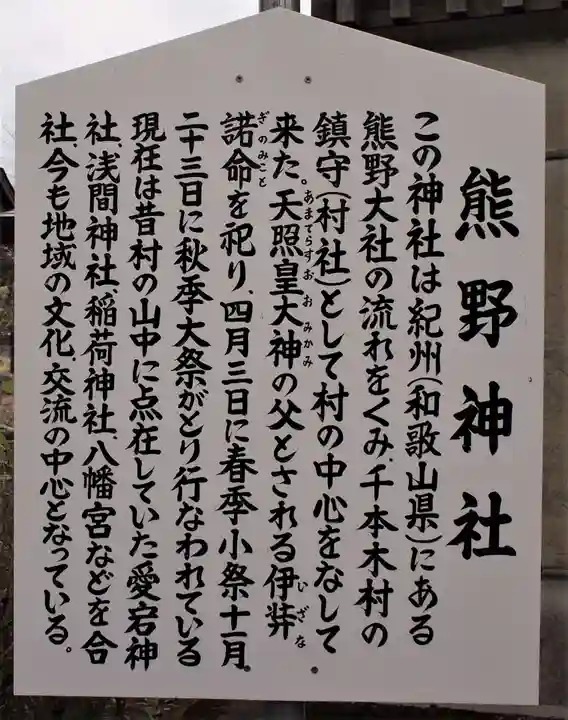 熊野神社
この神社は紀州(和歌山県)にある
熊野大社の流れをくみ、千本木村の
鎮守(村社)として村の中心をなして
来た。天照皇大神の父とされる伊弉
あまてらすおおみかみ
いざな
諾命を祀り、四月三日に春季小祭十一月、
ぎのみこと
二十三日に秋季大祭がとり行なわれている
現在は昔村の山中に点在していた愛宕神
社、浅間神社、稲荷神社、八幡宮などを合
社、今も地域の文化、交流の中心となっている。